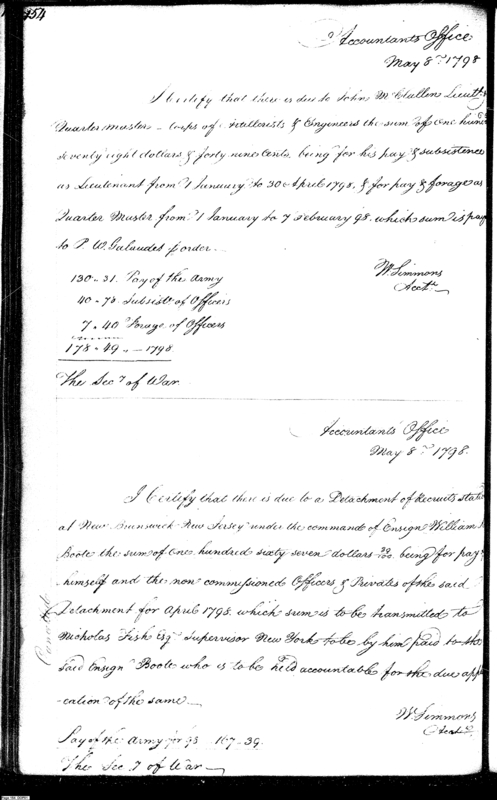 154
Accountants Office
May 8th 1798
I Certify that there is due to John McClallen Lieutt &
Quarter master - Corps of Artillerists & Engineers the sum of one hund
seventy eight dollars & forty nine Cents, being for his pay & subsistence
as Lieutenant from 1 January to 30 April 1798, & for pay & forage as
Quarter Master from 1 January to 7 February 98. which sum is pay
to P W. Galaudes p order
130 - 31. Pay of the Army
40 - 78. Subsist of Officers
7 - 40 Forage of Officers
178 - 49 - 1798
W. Simmons
Acctt
The Secy of War
Accountants Office
May 8th 1798.
I Certify that there is due to a Detachment of Recruits stat
at New Brunswick New Jersey under the command of Ensign William
Boote the sum of One hundred sixty seven dollars 39/100 being for pay
himself and the non commissioned Officers & Privates of the said
Detachment for April 1798. which sum is to be transmitted to
Nicholas Fish Esqr Supervisor New York to be by him paid to the
said Ensign Boote who is to be held accountable for the due appli
cation of the same
Cancelled
W Simmons
Acctt
Pay of the Army for 98 167 - 39.
The Secy of War